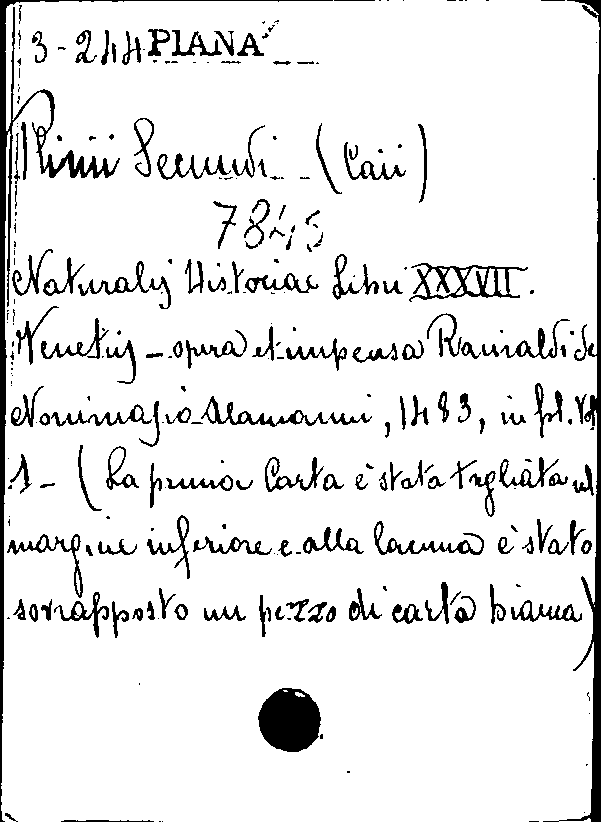 3-244 PIANA
Plinii Secundi (Caii)
7845
Naturalis Historiae Libri XXXVII.
Venetiis - opera et impensa Rainaldi de
Novimagio Alamanni, 1483, in fol. Vol.
1 - (La prima Carta è stata tagliata nel
margine inferiore e alla lacuna è stato
sovrapposto un pezzo di carta bianca)